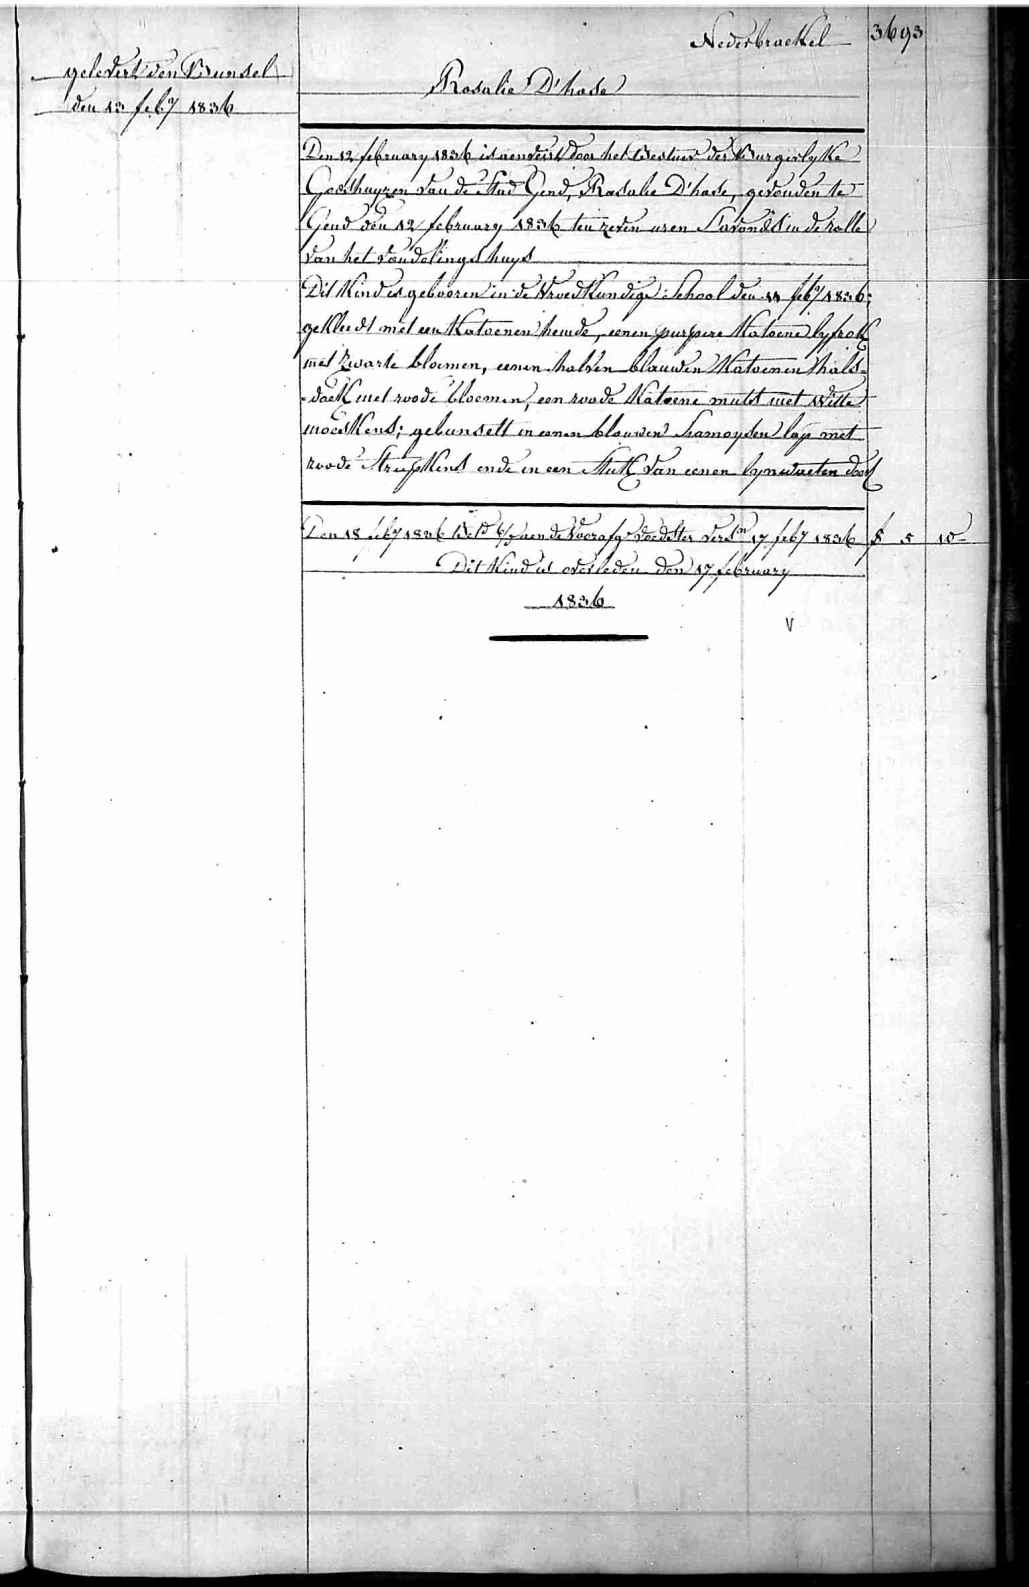 Nederbraekel 3693
gelevert den Bunsel
den 13 feby 1836
Rosalie D'hase
Den 12 february 1836 is aenveird door het Bestuer der Burgerlyke
Godshuyzen van de Stad Gend, Rosalie D'hase, gevonden te
Gend den 12 february 1836 ten zeven uren S'avonds in de rolle
van het vondelingshuys
Dit Kind is gebooren in de Vroedkundige School den 11 feby 1836;
gekleedt met een Katoenen hemde, eenen purpere Katoene lyfrok
met zwarte bloemen, eenen halven blauwen Katoenen hals-
doek met roode bloemen, een roode Katoene muts met Witte
moeskens; gebunselt in eenen blouwen Siamoysen lap met
roode Streepkens ende in een Stuk van eenen lynwaeten doek
Den 18 feby 1836 aen de Voorafge voedster 17 feby 1836 f 5 10
Dit Kind is overleden den 17 february
1836
V